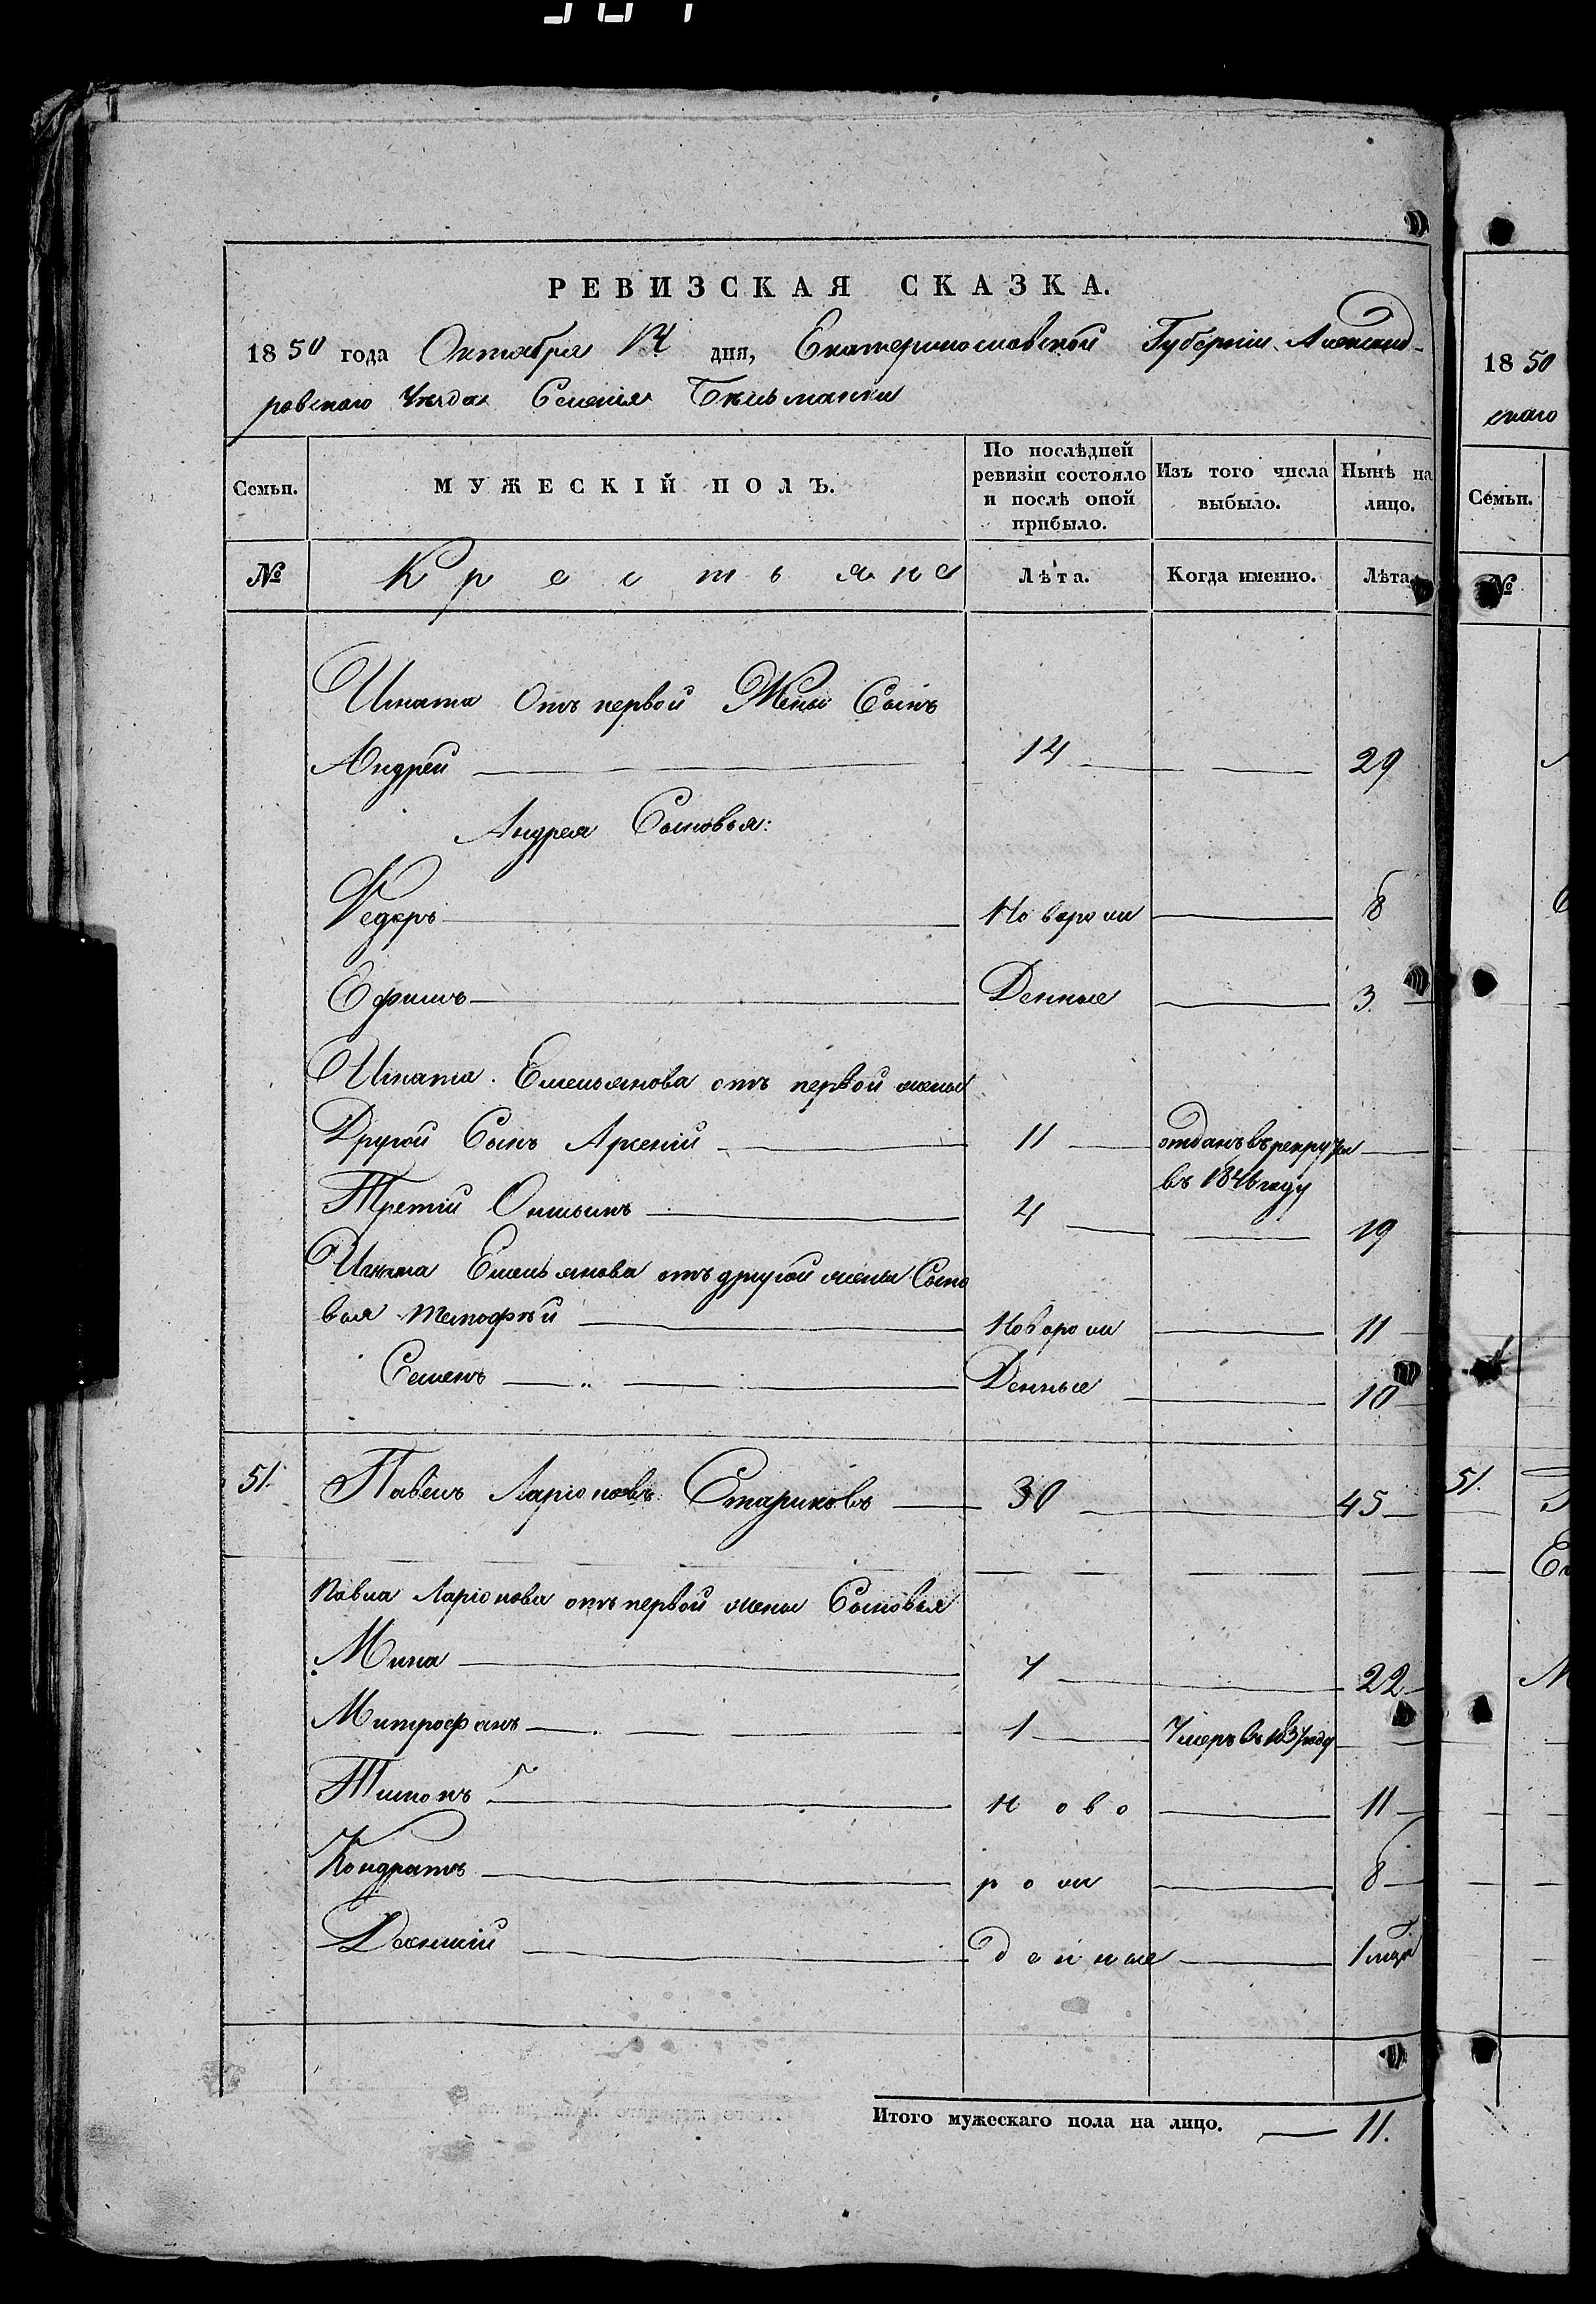 РЕВИЗСКАЯ СКАЗКА.
1850 года Октября 14 дня, Екатеринославской Губерніи Александ-
ровскаго Уѣзда Селенія Бѣльманки
Семьи.
МУЖЕСКІЙ ПОЛЪ.
По послѣдней ревизіи состояло и послѣ оной прибыло.
Изъ того числа выбыло.
Нынѣ на лицо.
№ Крестьяне Лѣта. Когда именно. Лѣта.
Игната Отъ первой Жены Сынъ
Андрей 14 29
Андрея Сыновья:
Федоръ Новорож 8
Ефимъ Денные 3
Игната Емельянова отъ первой жены
Другой Сынъ Арсеній 11 отданъ въ рекруты
въ 1846 году
Третій 4 19
Игната Емельянова отъ другой жены Сыно
вья Темофѣй Новорож 11
Семенъ Денные 10
51. Павелъ Ларіоновъ Стариковъ 30 45
Павла Ларіонова отъ первой жены Сыновья
Мина 7 22
Митрофанъ 1 Умеръ въ 1837 году
Тимонъ ново 11
Кондратъ рож 8
денные 1
Итого мужескаго пола на лицо. 11.
1850
скаго
Семьи.
№
51.